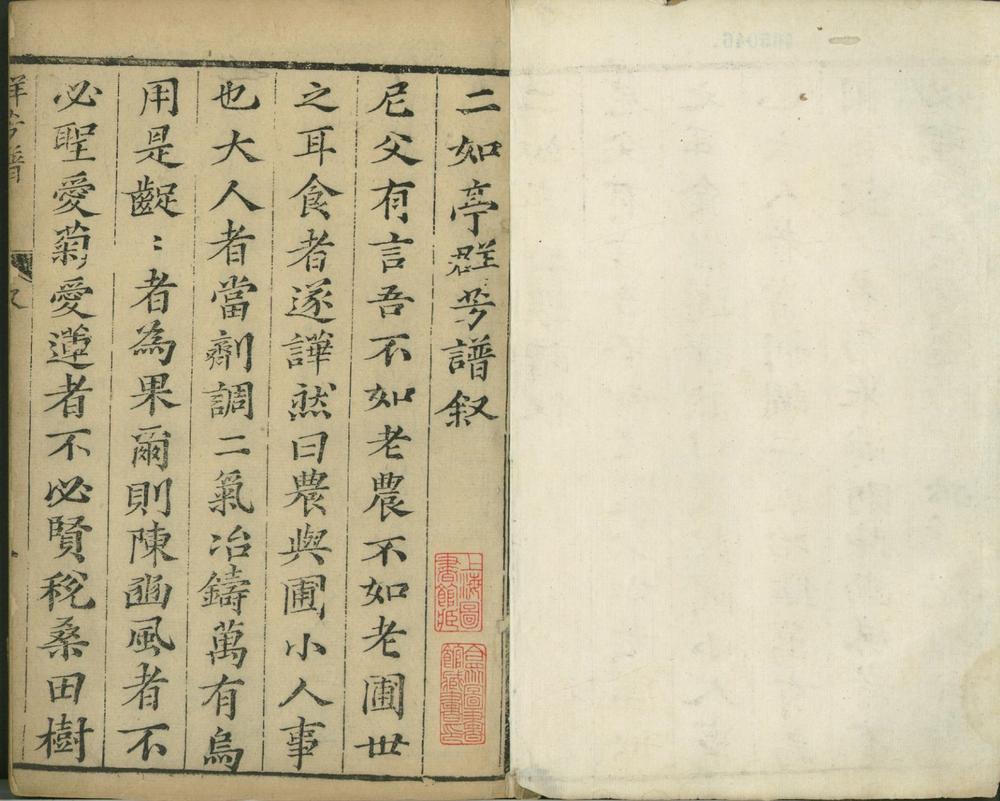 二如亭群芳譜叙
尼父有言吾不如老農不如老圃世
之耳食者遂譁然曰農與圃小人事
也大人者當劑調二氣冶鑄萬有烏
用是齪〻者為果爾則陳豳風者不
必聖愛菊愛蓮者不必賢稅桑田樹
上海圖書館藏